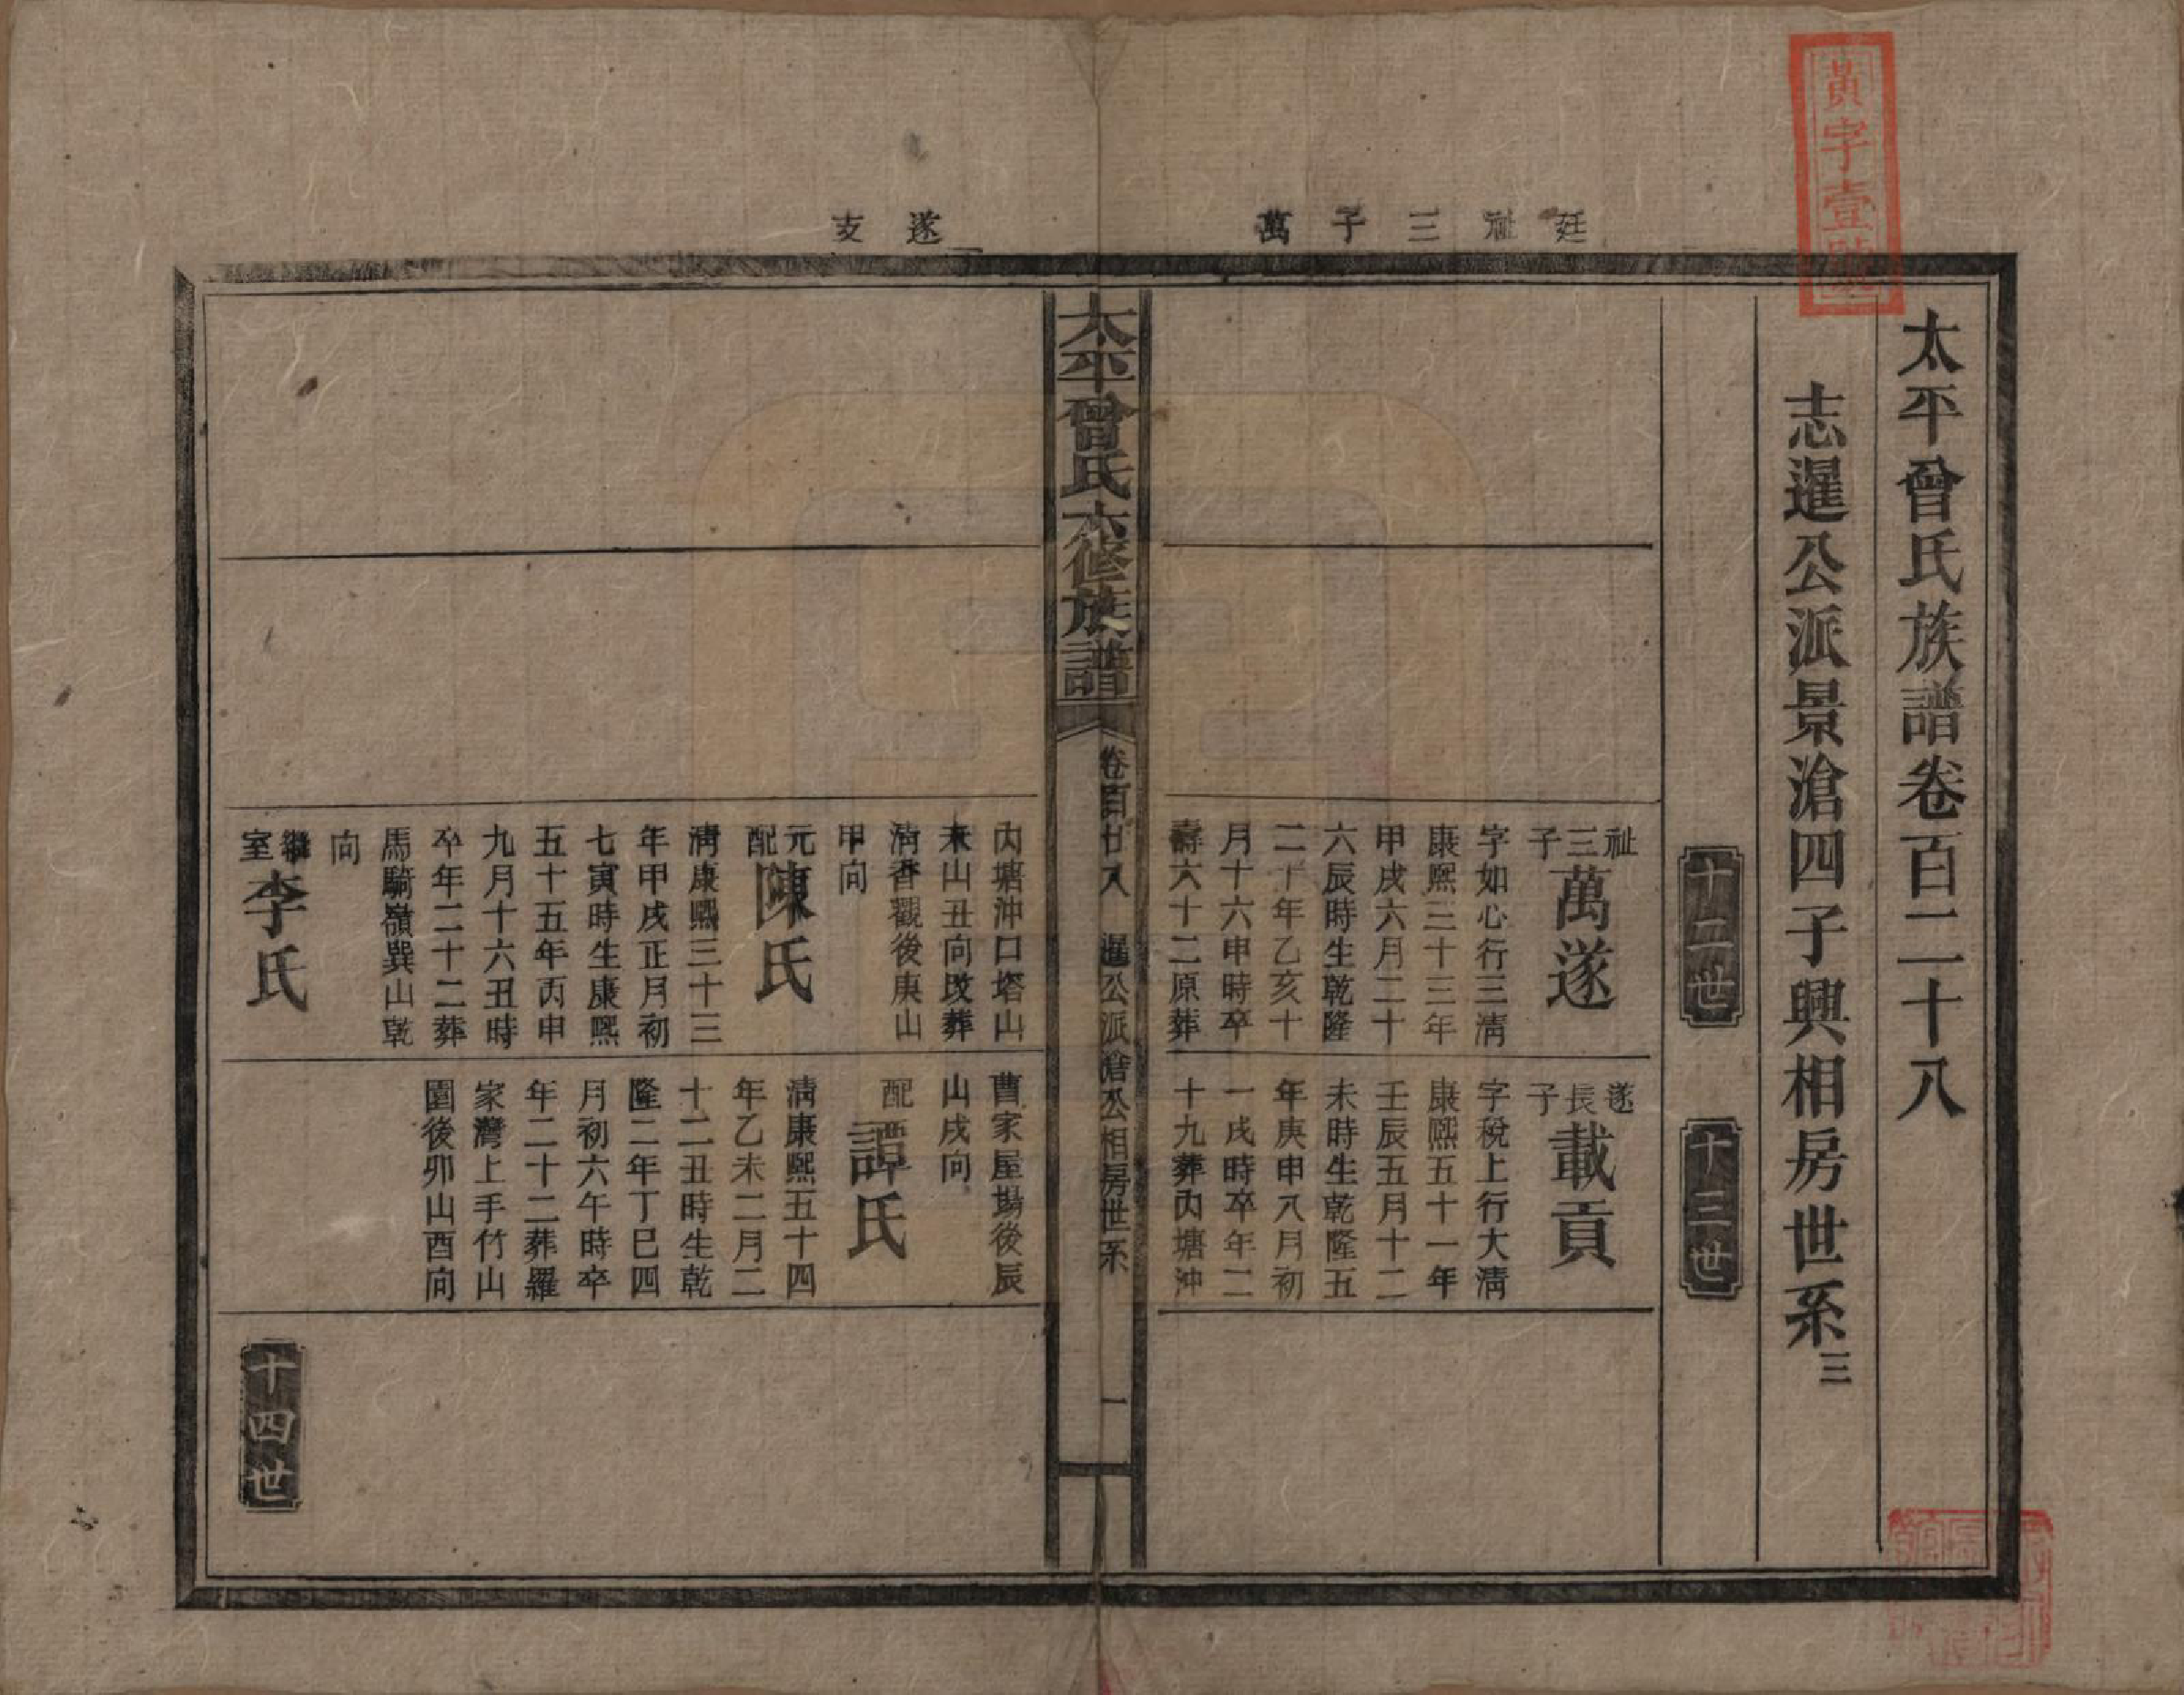 黃字壹號
太平曾氏族譜卷百二十八
志暹公派景滄四子興相房世系三
十二世
十三世
廷祉三子萬
遂支
祉三子
萬遂
字如心行三清
康熙三十三年
甲戌六月二十
六辰時生乾隆
二十年乙亥十
月十六申時卒
壽六十二原葬
內塘沖口塔山
未山丑向改葬
清香觀後庚山
甲向
元配
陳氏
清康熙三十三
年甲戌正月初
七寅時生康熙
五十五年丙申
九月十六丑時
卒年二十二葬
馬騎嶺巽山乾
向
繼室
李氏
遂長子
載貢
字稅上行大清
康熙五十一年
壬辰五月十二
未時生乾隆五
年庚申八月初
一戌時卒年二
十九葬內塘沖
曹家屋場後辰
山戌向
配
譚氏
清康熙五十四
年乙未二月二
十二丑時生乾
隆二年丁巳四
月初六午時卒
年二十二葬羅
家灣上手竹山
園後卯山酉向
十四世
太平曾氏六修族譜
卷百廿八
暹公派滄公相房世系
一